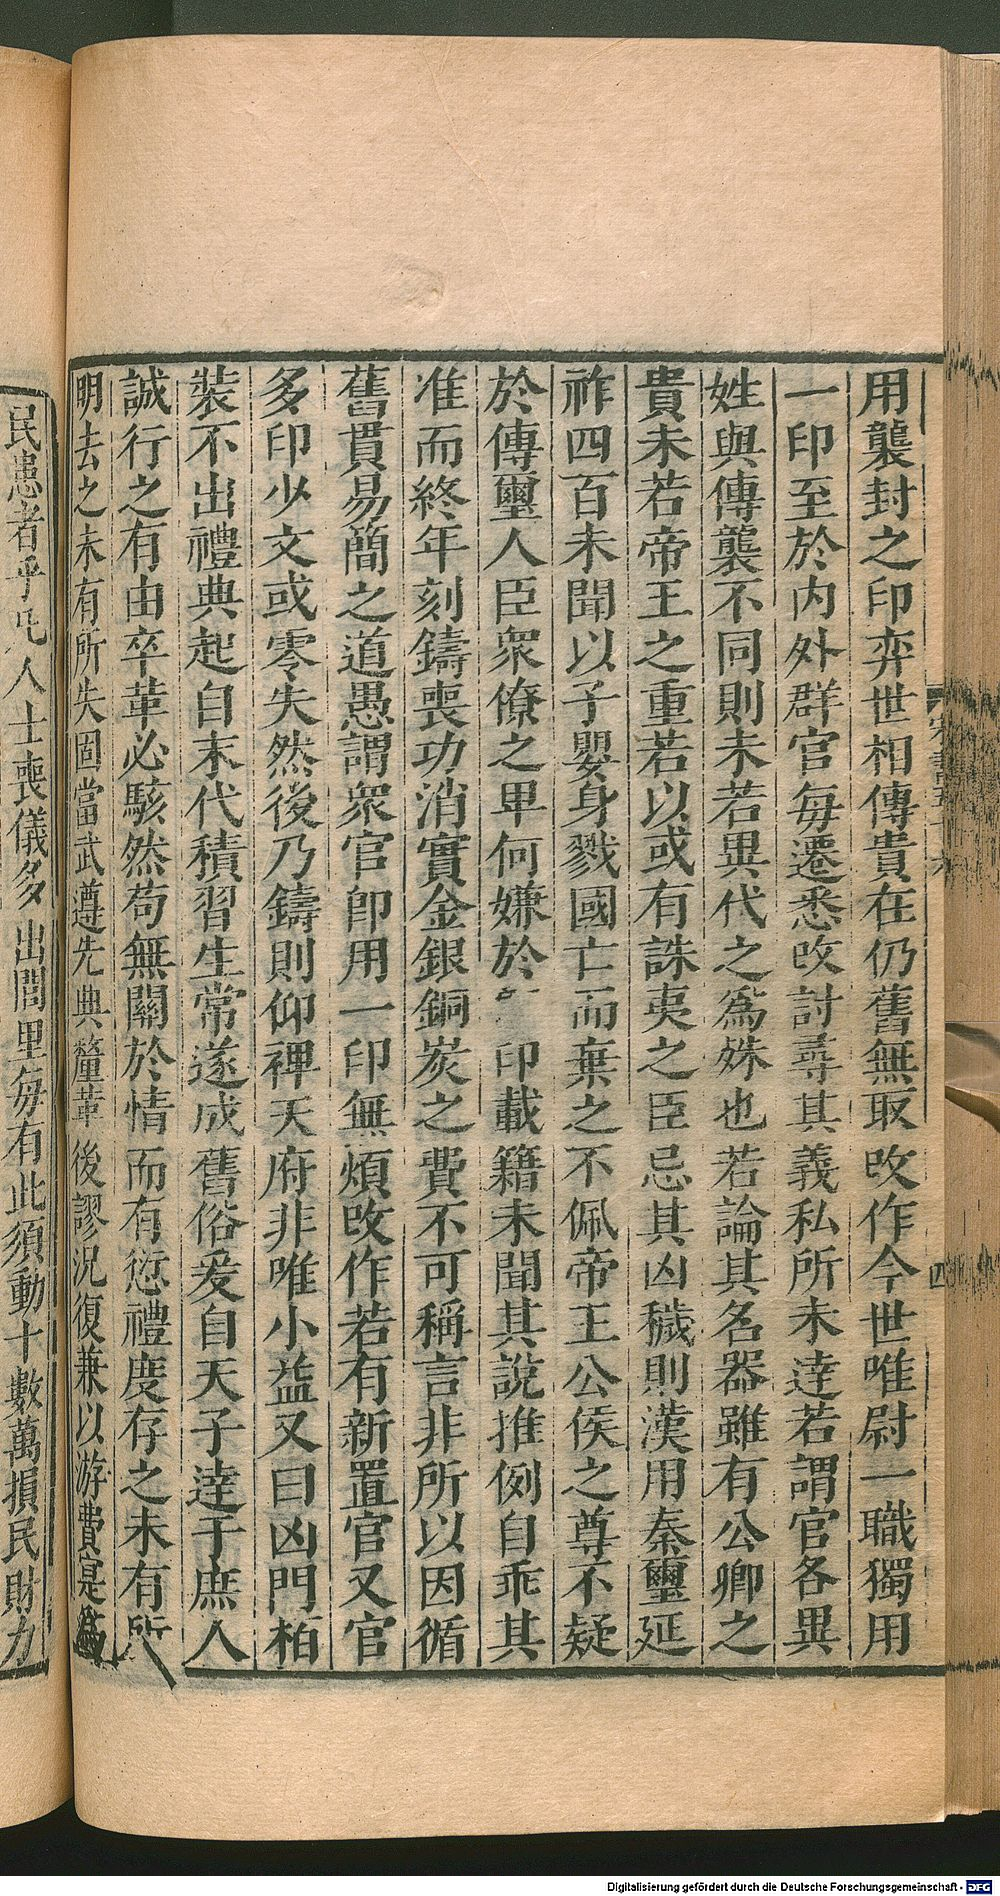 用襲封之印弈世相傳貴在仍舊無取改作今世唯尉一職獨用
一印至於内外群官每遷悉改討尋其義私所未逹若謂官各異
姓與傳襲不同則未若異代之爲殊也若論其名器雖有公卿之
貴未若帝王之重若以或有誅夷之臣忌其凶穢則漢用秦璽延
祚四百未聞以子嬰身戮國亡而棄之不佩帝王公侯之尊不疑
於傳璽人臣衆僚之卑何嫌於 印載籍未聞其說推例自乖其
准而終年刻鑄喪功消實金銀銅炭之費不可稱言非所以因循
舊貫易簡之道愚謂衆官卽用一印無煩改作若有新置官又官
多印少文或零失然後乃鑄則仰裨天府非唯小益又曰凶門柏
裝不出禮典起自末代積習生常遂成舊俗爰自天子逹于庶人
誠行之有由卒革必駭然苟無關於情而有愆禮度存之未有所
明去之未有所失固當武遵先典釐革後謬況復兼以游費寔爲
民患者乎凡人士喪儀多出閭里每有此須動十數萬損民財力
四
Digitalisierung gefördert durch die Deutsche Forschungsgemeinschaft - DFG